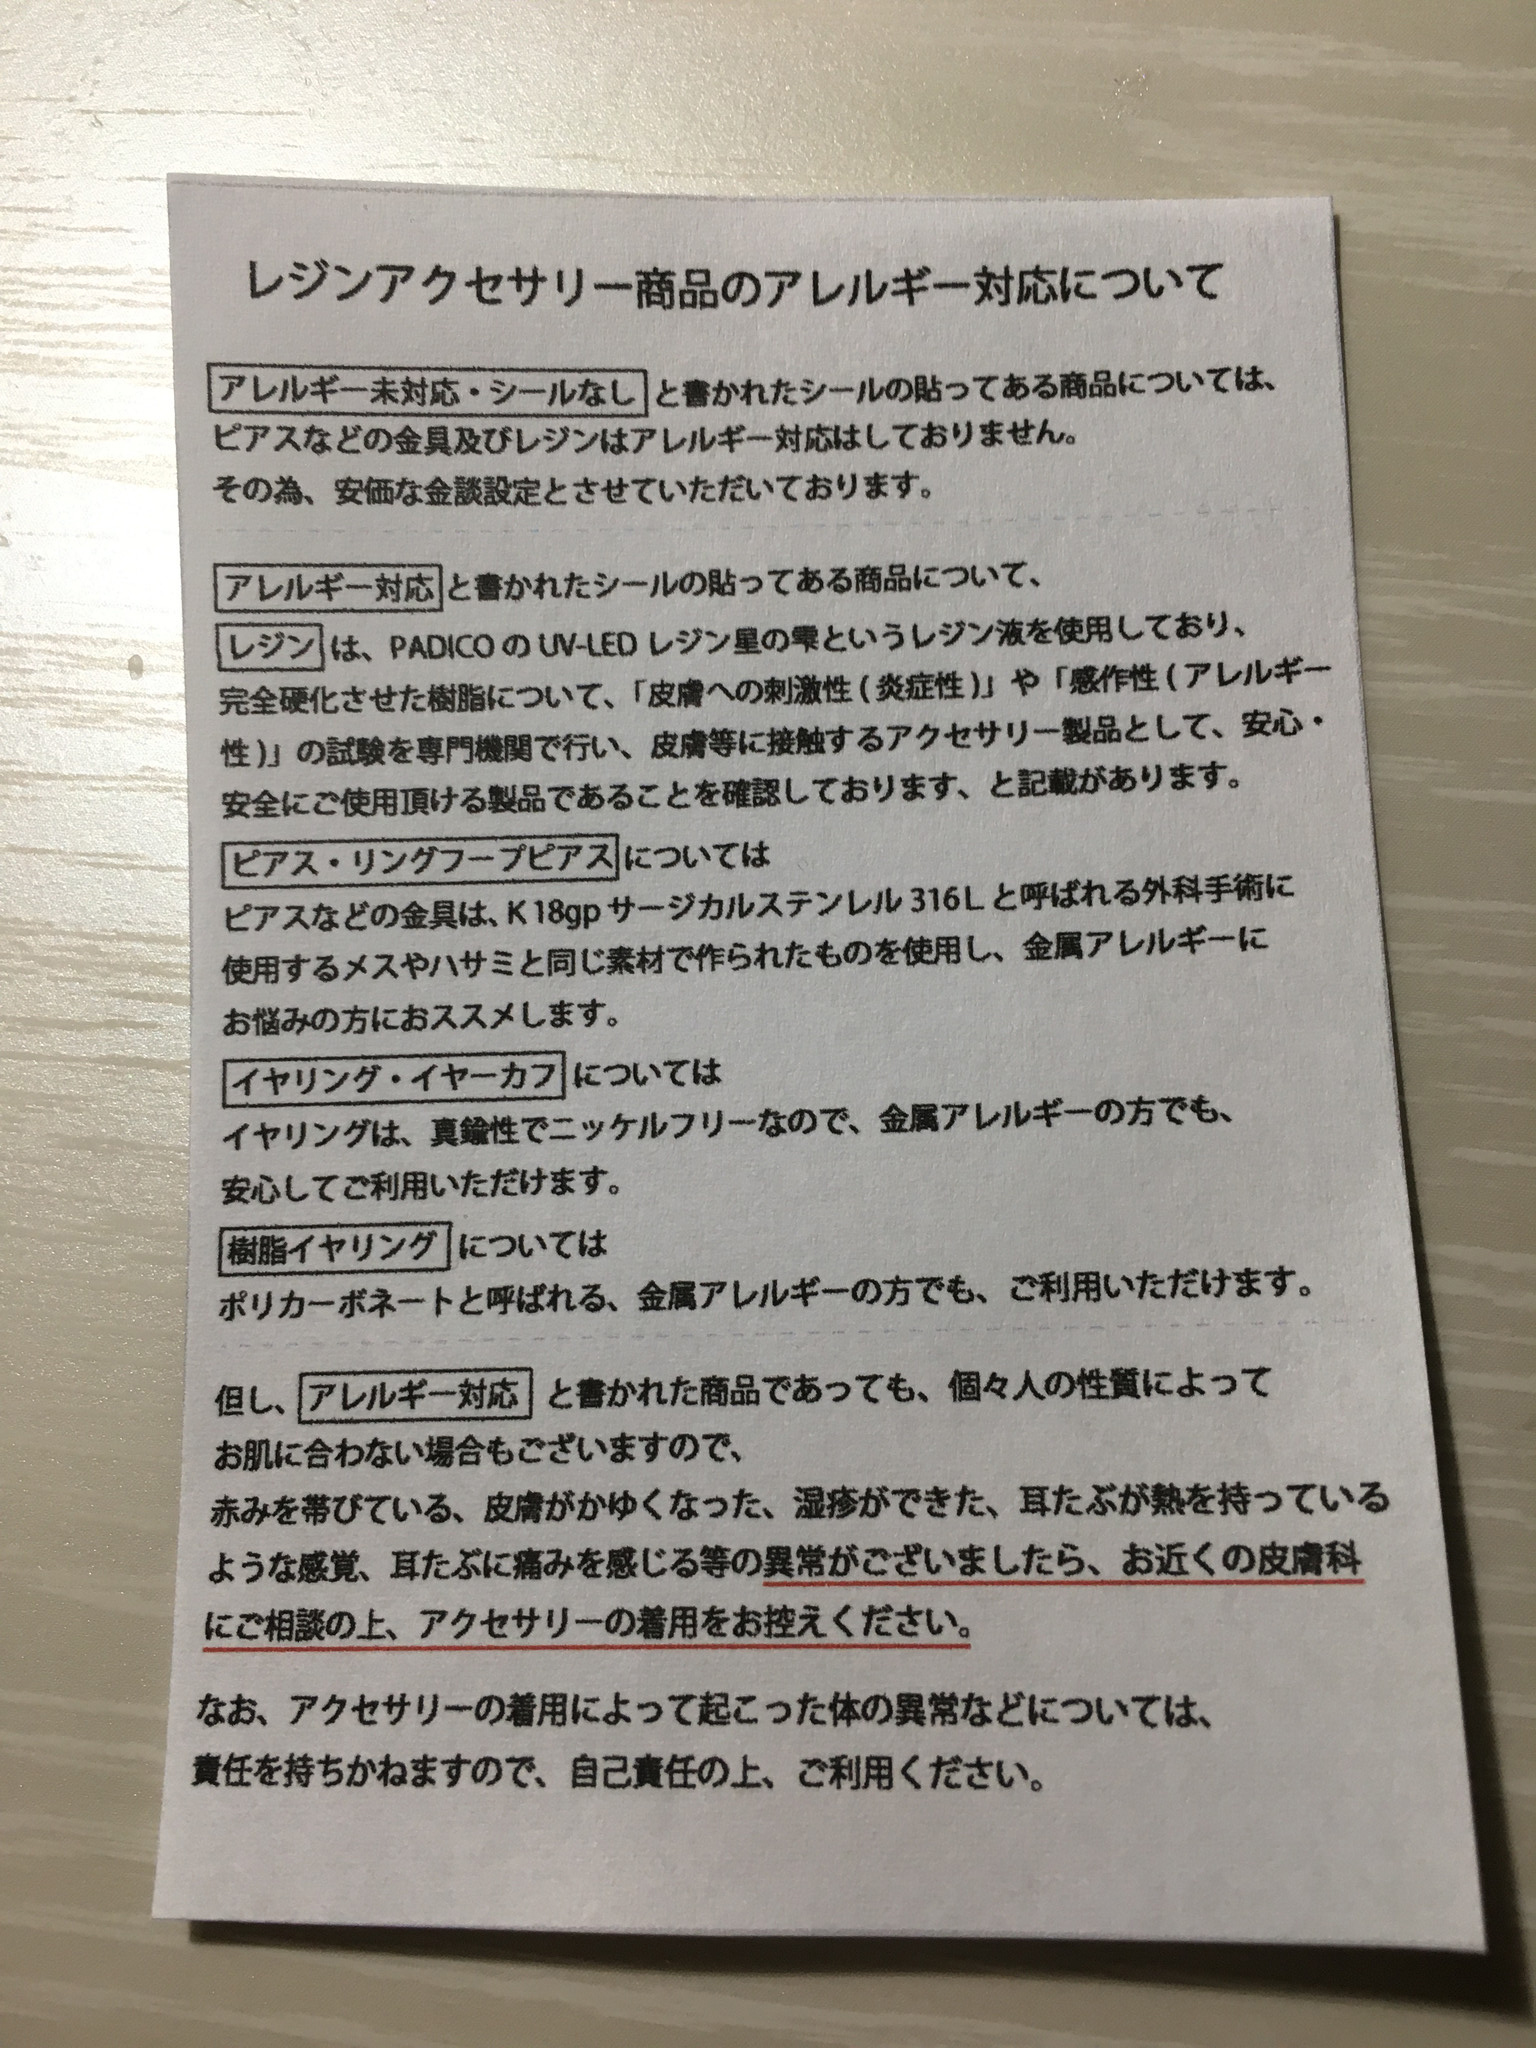 レジンアクセサリー商品のアレルギー対応について
アレルギー未対応・シールなし と書かれたシールの貼ってある商品については、
ピアスなどの金具及びレジンはアレルギー対応はしておりません。
その為、安価な金談設定とさせていただいております。
アレルギー対応 と書かれたシールの貼ってある商品について、
レジン は、PADICOのUV-LEDレジン星の雫というレジン液を使用しており、
完全硬化させた樹脂について、「皮膚への刺激性(炎症性)」や「感作性(アレルギー
性)」の試験を専門機関で行い、皮膚等に接触するアクセサリー製品として、安心・
安全にご使用頂ける製品であることを確認しております、と記載があります。
ピアス・リングフープピアス については
ピアスなどの金具は、K18gpサージカルステンレル316Lと呼ばれる外科手術に
使用するメスやハサミと同じ素材で作られたものを使用し、金属アレルギーに
お悩みの方におススメします。
イヤリング・イヤーカフ については
イヤリングは、真鍮性でニッケルフリーなので、金属アレルギーの方でも、
安心してご利用いただけます。
樹脂イヤリング については
ポリカーボネートと呼ばれる、金属アレルギーの方でも、ご利用いただけます。
但し、アレルギー対応 と書かれた商品であっても、個々人の性質によって
お肌に合わない場合もございますので、
赤みを帯びている、皮膚がかゆくなった、湿疹ができた、耳たぶが熱を持っている
ような感覚、耳たぶに痛みを感じる等の異常がございましたら、お近くの皮膚科
にご相談の上、アクセサリーの着用をお控えください。
なお、アクセサリーの着用によって起こった体の異常などについては、
責任を持ちかねますので、自己責任の上、ご利用ください。